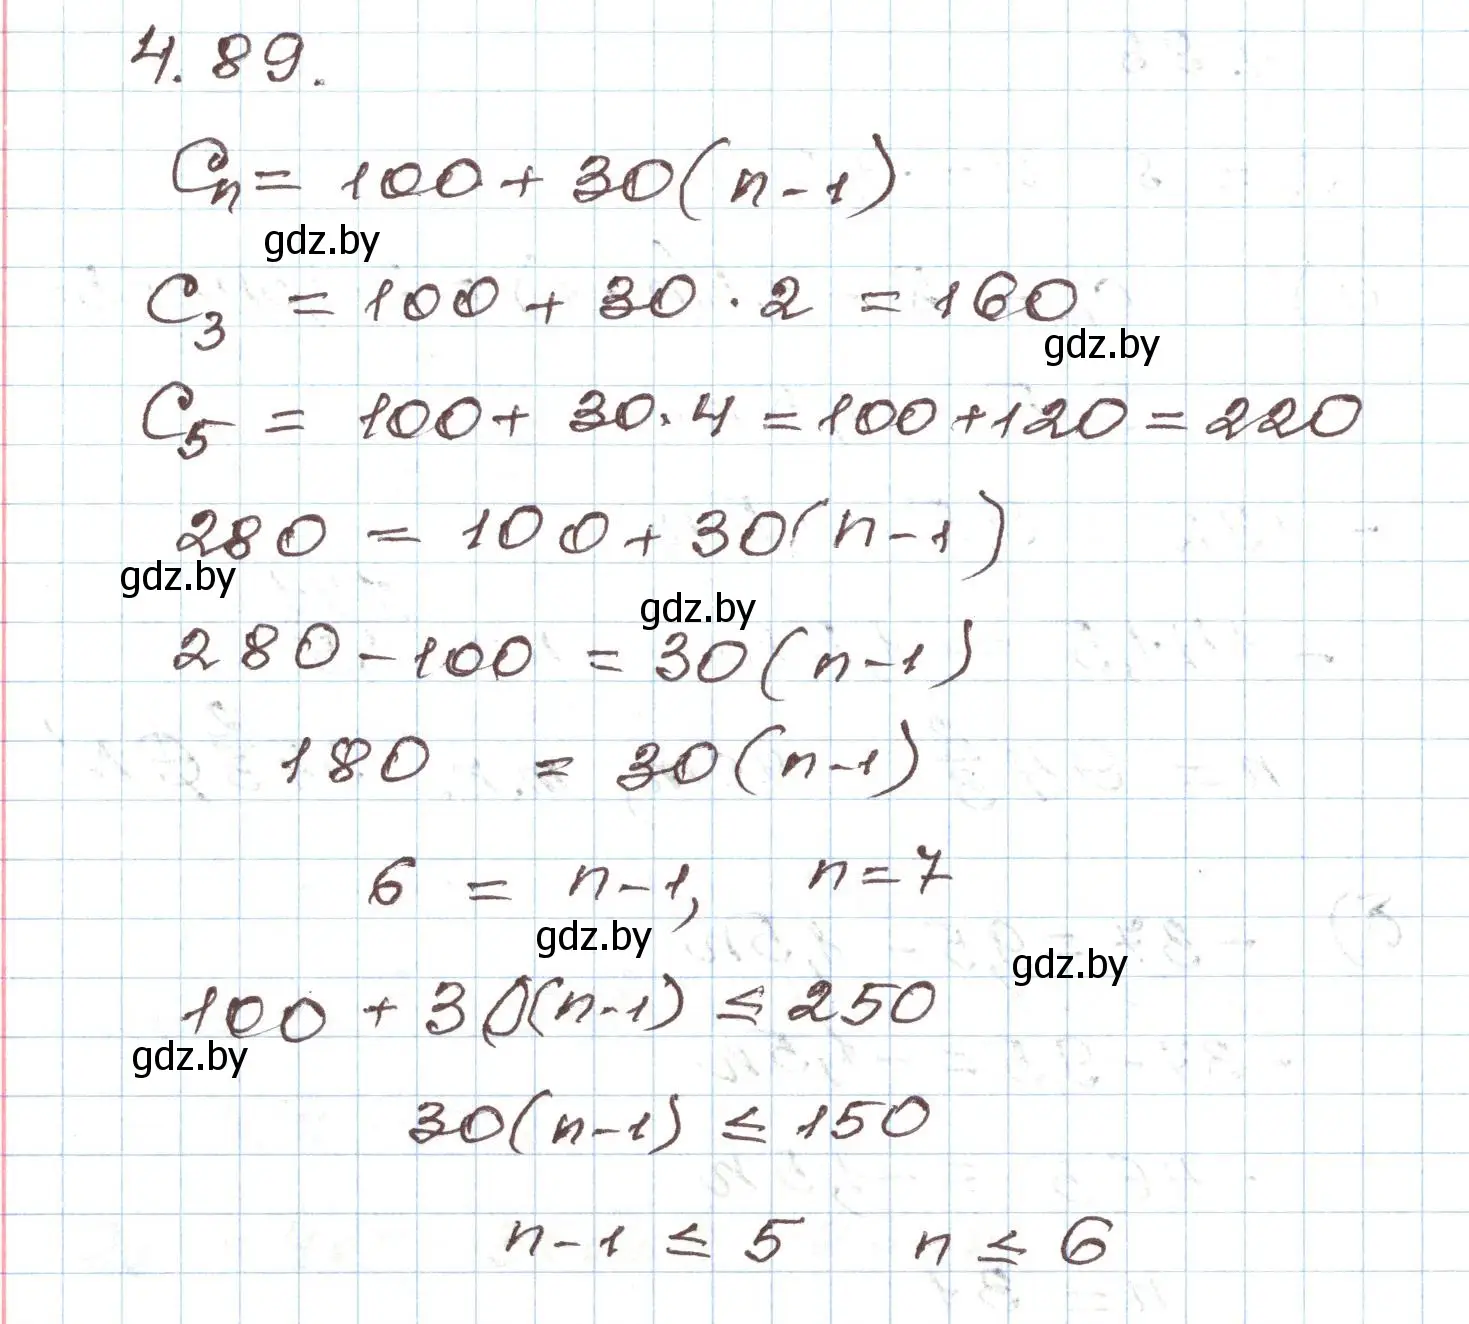 4.89.
Cₙ = 100 + 30(n-1)
gdz.by
C₃ = 100 + 30 · 2 = 160
gdz.by
C₅ = 100 + 30 · 4 = 100 + 120 = 220
280 = 100 + 30(n-1)
gdz.by
gdz.by
280 - 100 = 30(n-1)
180 = 30(n-1)
6 = n-1, n = 7
gdz.by
gdz.by
100 + 30(n-1) ≤ 250
gdz.by
30(n-1) ≤ 150
n-1 ≤ 5 n ≤ 6